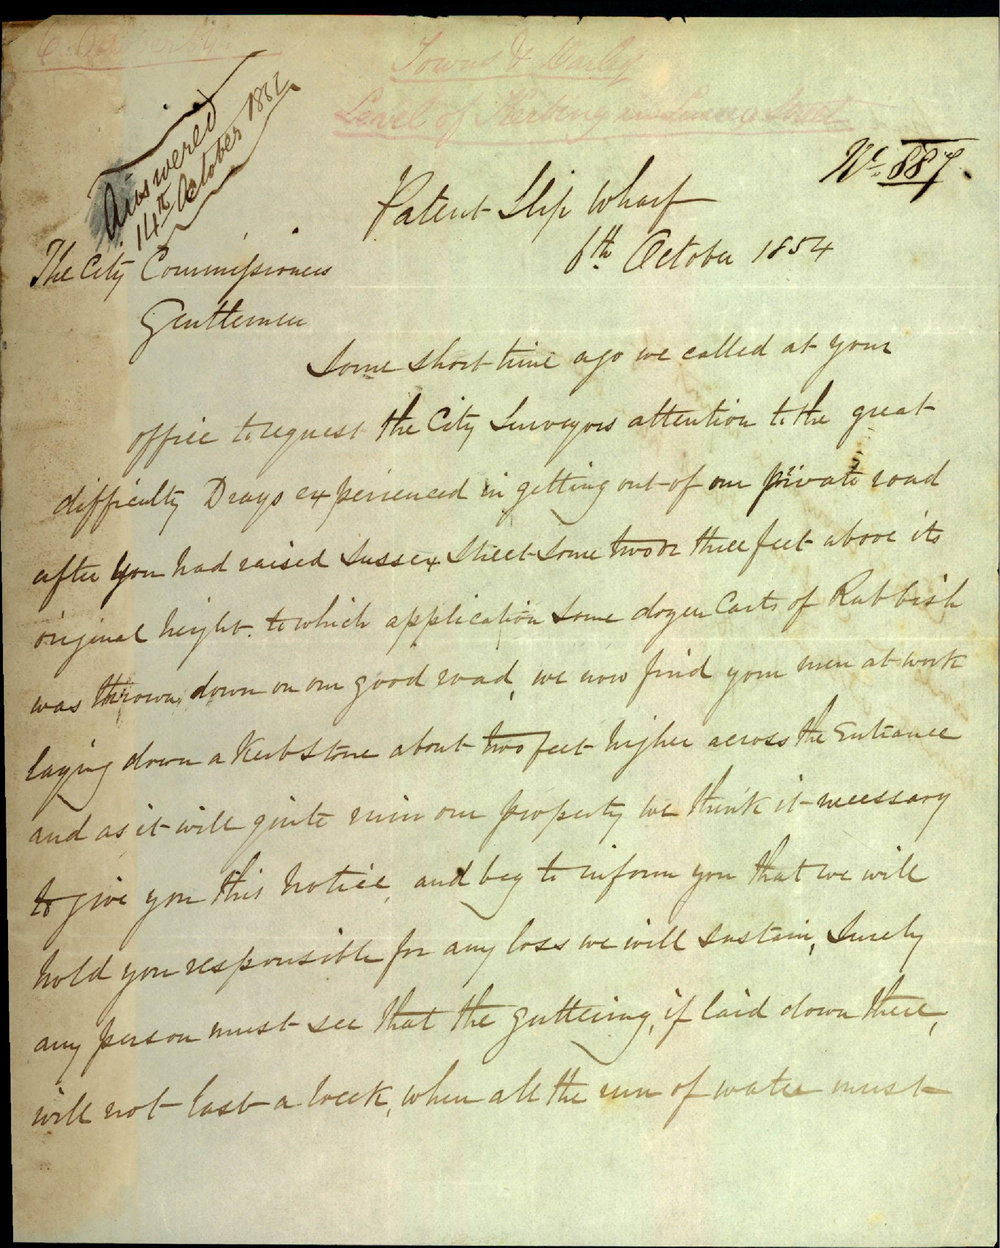 6 October 54.
Towns &
Level of Kerbing in Sussex Street
No. 887.
Answered
14th October 185
Patent Slip Wharf
6th October 1854
The City Commissioners
Gentlemen
Some short time ago we called at your
office to request the City Surveyors attention to the great
difficulty Drays experienced in getting out of our private road
after you had raised Sussex Street some two or three feet above its
original height. to which application some dozen Carts of Rubbish
was thrown down on our good road, we now find your men at work
laying down a Kerb Stone about two feet higher across the Entrance
and as it will quite ruin our property we think it necessary
to give you this notice, and beg to inform you that we will
hold you responsible for any loss we will sustain, Surely
any person must see that the guttering, if laid down there,
will not last a week, when all the run of water must